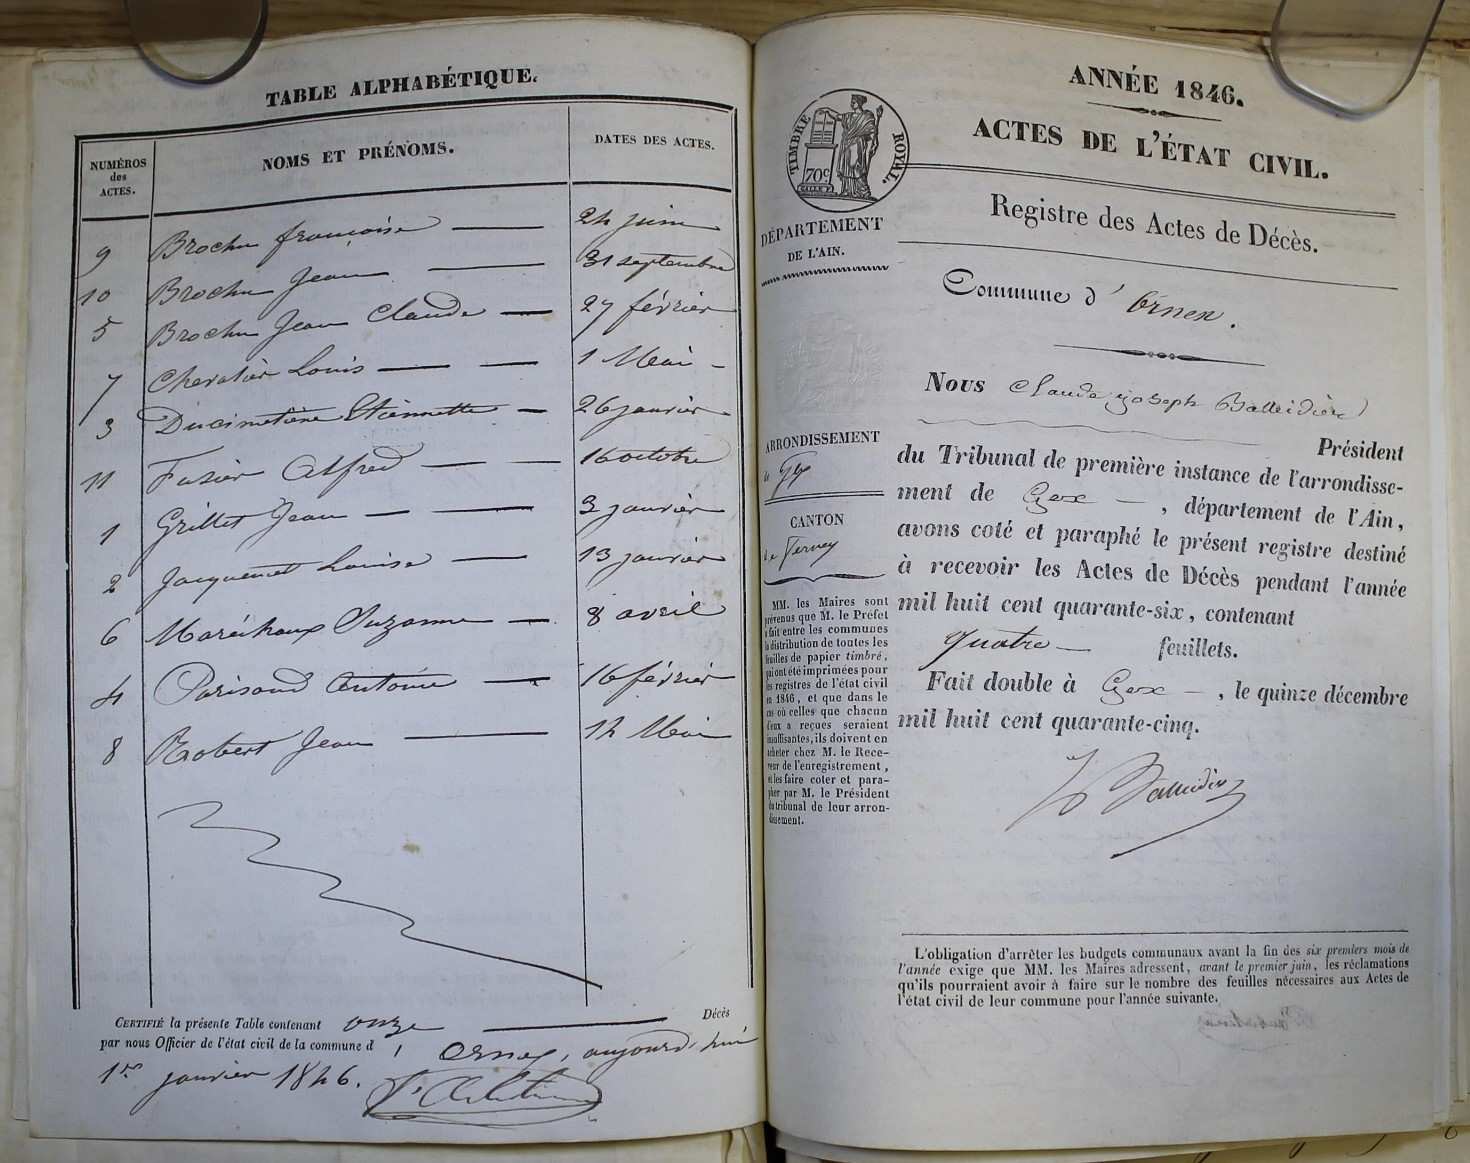 TABLE ALPHABÉTIQUE.
NUMÉROS des ACTES.
NOMS ET PRÉNOMS.
DATES DES ACTES.
9 Brochu françoise — 24 juin
10 Brochu Jean — 31 septembre
5 Brochu Jean Claude — 27 février
7 Chevalier Louis — — 1 Mai -
3 Ducimetière Etiennette — 26 janvier
11 Fusier Alfred — — 16 octobre
1 Grillet Jean — — 3 janvier
2 Jacquemet Louise — 13 janvier
6 Maréchaux Suzanne — 8 avril
4 Parisaud Antoine — 16 février
8 Robert Jean — 14 Mai
CERTIFIÉ la présente Table contenant onze — Décès
par nous Officier de l'état civil de la commune d' Ornex, aujourd'hui
1er janvier 1846.
ANNÉE 1846.
ACTES DE L'ÉTAT CIVIL.
TIMBRE ROYAL.
70c
DÉPARTEMENT
DE L'AIN.
Registre des Actes de Décès.
Commune d' Ornex.
Nous Claude joseph Balleidier
Président
du Tribunal de première instance de l'arrondisse-
ment de Gex — , département de l'Ain,
avons coté et paraphé le présent registre destiné
à recevoir les Actes de Décès pendant l'année
mil huit cent quarante-six, contenant
quatre — feuillets.
Fait double à Gex — , le quinze décembre
mil huit cent quarante-cinq.
Balleidier
ARRONDISSEMENT
de Gex
CANTON
de Ferney
MM. les Maires sont
prévenus que M. le Préfet
a fait entre les communes
la distribution de toutes les
feuilles de papier timbré,
qui ont été imprimées pour
les registres de l'état civil
en 1846, et que dans le
cas où celles que chacun
d'eux a reçues seraient
insuffisantes, ils doivent en
acheter chez M. le Rece-
veur de l'enregistrement,
et les faire coter et para-
pher par M. le Président
du tribunal de leur arron-
dissement.
L'obligation d'arrêter les budgets communaux avant la fin des six premiers mois de
l'année exige que MM. les Maires adressent, avant le premier juin, les réclamations
qu'ils pourraient avoir à faire sur le nombre des feuilles nécessaires aux Actes de
l'état civil de leur commune pour l'année suivante.